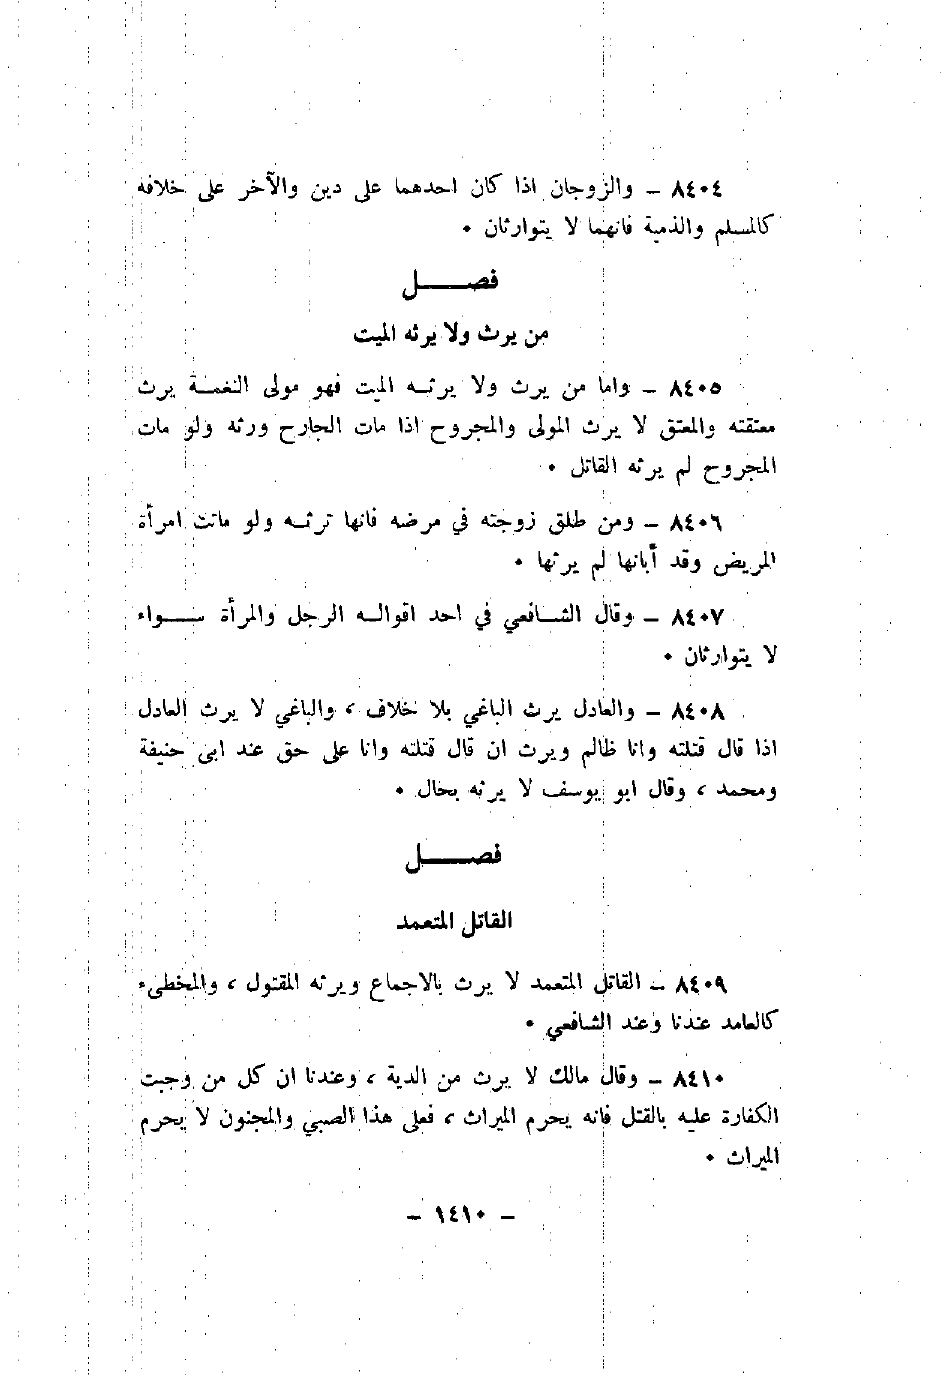 ٨٤٠٤ – والزوجان اذا كان احدهما على دين والآخر على خلافه
كالمسلم والذمية فانهما لا يتوارثان ٠
فصــــــل
من يرث ولا يرثه الميت
٨٤٠٥ – واما من يرث ولا يرثــه الميت فهو مولى النعمــة يرث
معتقته والمعتق لا يرث المولى والمجروح اذا مات الجارح ورثه ولو مات
المجروح لم يرثه القاتل ٠
٨٤٠٦ – ومن طلق زوجته في مرضه فانها ترثــه ولو ماتت امرأة
المريض وقد أبانها لم يرثها ٠
٨٤٠٧ – وقال الشــافعي في احد اقوالــه الرجل والمرأة ســـواء
لا يتوارثان ٠
٨٤٠٨ – والعادل يرث الباغي بلا خلاف ، والباغي لا يرث العادل
اذا قال قتلته وانا ظالم ويرث ان قال قتلته وانا على حق عند ابى حنيفة
ومحمد ، وقال ابو يوسف لا يرثه بحال ٠
فصــــــل
القاتل المتعمد
٨٤٠٩ – القاتل المتعمد لا يرث بالاجماع ويرثه المقتول ، والمخطىء
كالعامد عندنا وعند الشافعي ٠
٨٤١٠ – وقال مالك لا يرث من الدية ، وعندنا ان كل من وجبت
الكفارة عليه بالقتل فانه يحرم الميراث ، فعلى هذا الصبي والمجنون لا يحرم
الميراث ٠
– ١٤١٠ –